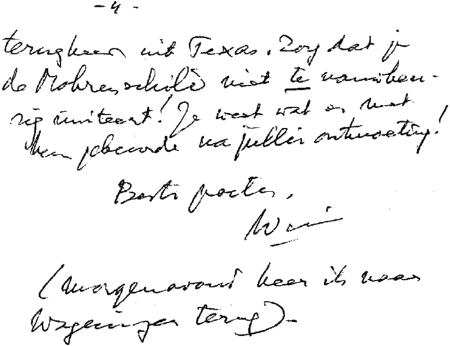 - 4 -
terugkeer uit Texas. Zorg dat je
de Mohrenschildt niet te nauwkeu-
rig uniteert! Je weet wat er met
hem gebeurde na jullie ontmoeting!
Beste groeten,
Wim
(Morgenavond keer ik naar
Wageningen terug).